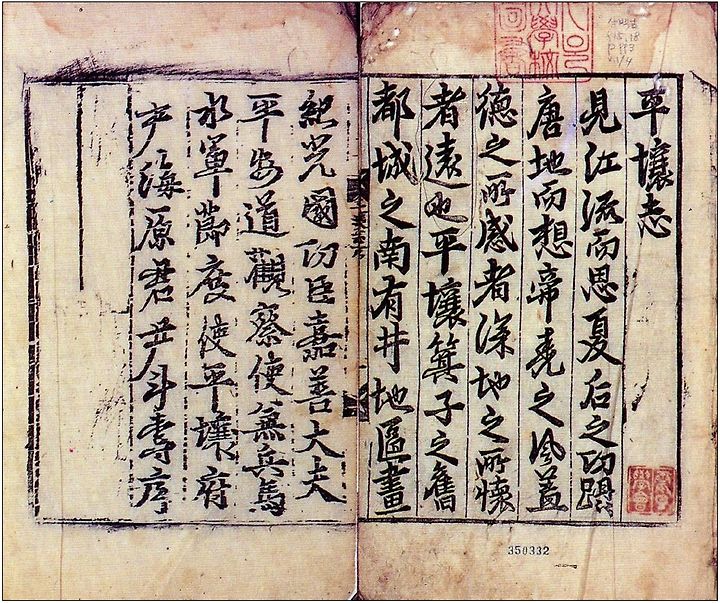 平壤志
見江流而思夏后之功躡
唐地而想帝堯之風盖
德之所感者深地之所懷
者遠也平壤箕子之舊
都城之南有井地區畫
紀光國功臣嘉善大夫
平安道觀察使兼兵馬
水軍節度使平壤府
尹海原君尹斗壽序
350332